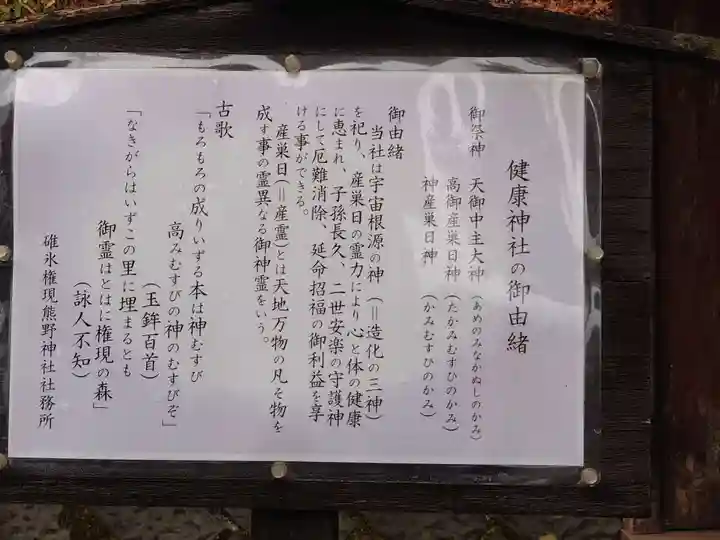 健康神社の御由緒
御祭神 天御中主大神（あめのみなかぬしのかみ）
高御産巣日神（たかみむすひのかみ）
神産巣日神（かみむすびのかみ）
御由緒
当社は宇宙根源の神（＝造化の三神）
を祀り、産巣日の霊力により心と体の健康
に恵まれ、子孫長久、二世安楽の守護神
にして厄難消除、延命招福の御利益を享
ける事ができる。
産巣日（＝産霊）とは天地万物の凡そ物を
成す事の霊異なる御神霊をいう。
古歌
「もろもろの成りいずる本は神むすび
高みむすびの神のむすびぞ」
（玉鉾百首）
「なきがらはいずこの里に埋まるとも
御霊はとはに権現の森」
（詠人不知）
碓氷権現熊野神社社務所